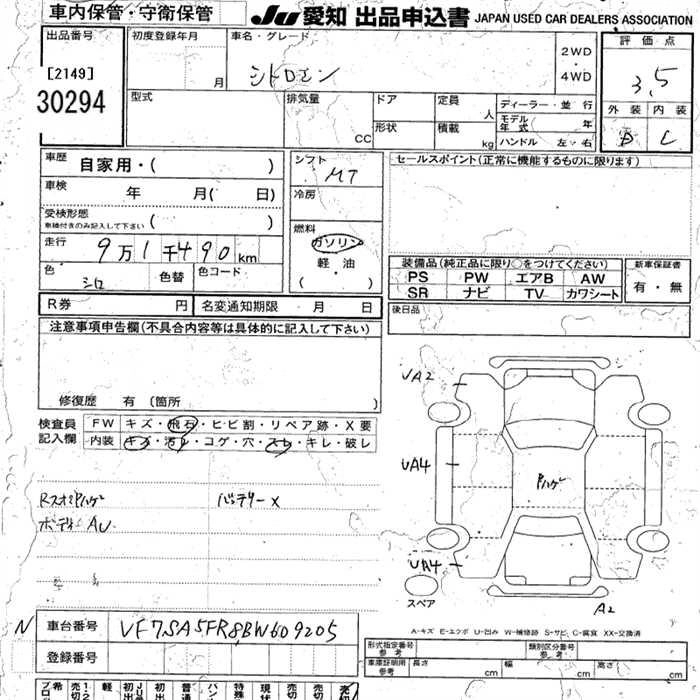 車内保管・守衛保管
JU 愛知 出品申込書 JAPAN USED CAR DEALERS ASSOCIATION
出品番号
[2149]
30294
初度登録年月
年
月
車名・グレード
シトロエン
2WD
・
4WD
評価点
3.5
外装 内装
B C
型式
排気量
CC
ドア
形状
定員
人
積載
kg
ディーラー・並行
モデル年式 年
ハンドル 左・右
車歴
自家用・( )
車検
年 月( 日)
受検形態
車検付きのみ記入して下さい ( )
走行
9万1千490km
色
シロ
色替
色コード
シフト
MT
冷房
燃料
ガソリン
軽・油
( ・ )
セールスポイント(正常に機能するものに限ります)
装備品(純正品に限り○をつけてください)
PS PW エアB AW
SR ナビ TV カワシート
新車保証書
有・無
後日品
R券 円
名変通知期限 月 日
注意事項申告欄(不具合内容等は具体的に記入して下さい)
修復歴 有 (箇所 )
検査員記入欄
FW キズ・飛石・ヒビ割・リペア跡・X要
内装 キズ・汚レ・コゲ・穴・スレ・キレ・破レ
Rスポイラハゲ
バッテリーX
ボディーAU
UA2
UA4
Pハゲ
UA4
スペア
A2
A-キズ E-エクボ U-凹み W-補修跡 S-サビ C-腐食 XX-交換済
N
車台番号
VF7SA5FR8BW609205
登録番号
形式指定番号 参考
類別区分番号 参考
車庫証明用 参考
長さ cm
幅 cm
高さ cm